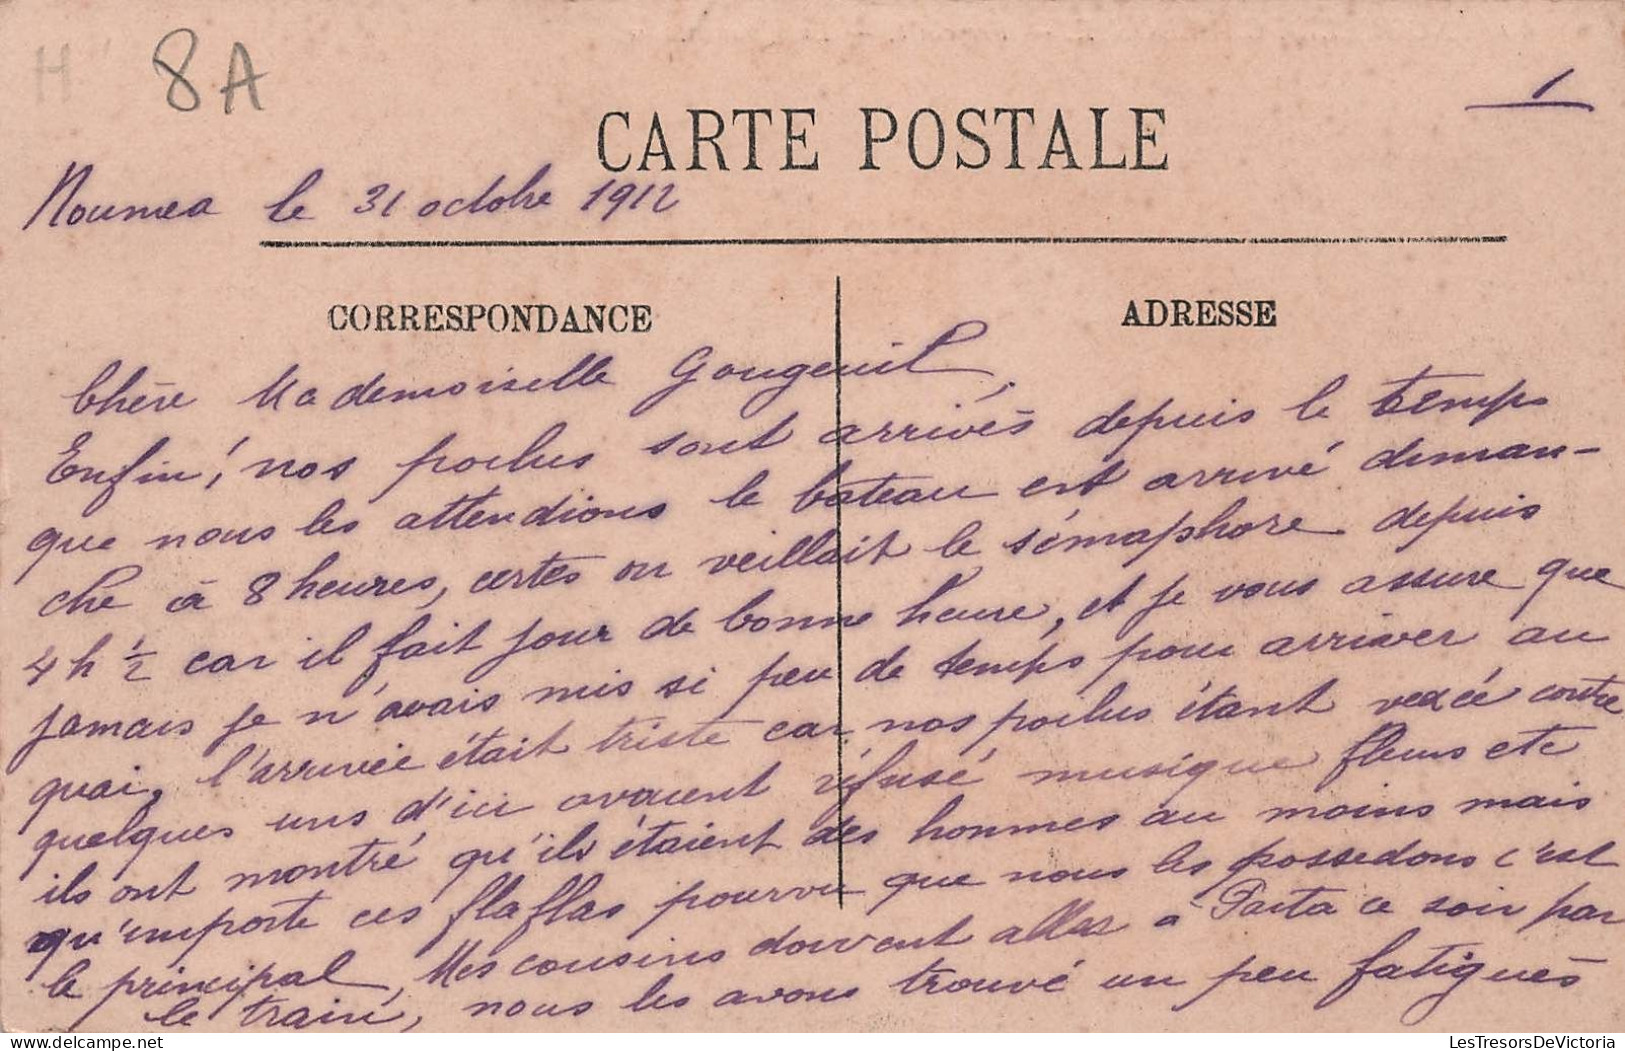 H 8A
1
CARTE POSTALE
Noumea le 31 octobre 1912
CORRESPONDANCE
ADRESSE
Chère Mademoiselle Gougenil,
Enfin! nos poilus sont arrivés depuis le temps
que nous les attendions le bateau est arrivé diman-
che à 8 heures, certes on veillait le sémaphore depuis
4 h 1/2 car il fait jour de bonne heure, et je vous assure que
jamais je n'avais mis si peu de temps pour arriver au
quai, l'arrivée était triste car nos poilus étant vexée contre
quelques uns d'ici avaient réfusé musique fleurs etc
ils ont montré qu'ils étaient des hommes au moins mais
qu'importe ces flaflas pourvu que nous les possedons c'est
le principal, Mes cousins doivent aller à Païta ce soir par
le train, nous les avons trouvé un peu fatigués
LesTresorsDeVictoria